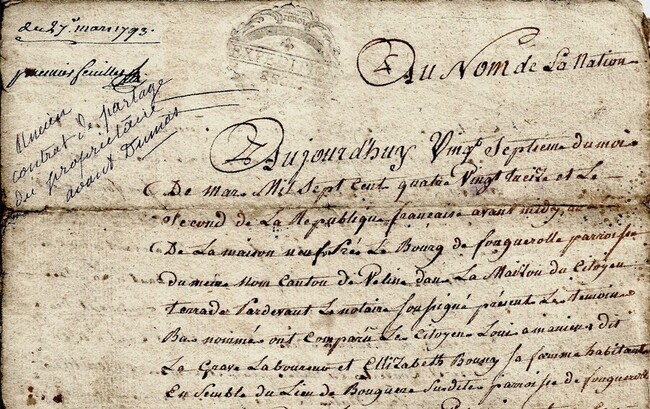 du 27e mars 1793.
premier feuillet
Ancien
contrat de partage
du propriétaire
avant Dumas
EXPEDI
Au Nom de La Nation
Aujourdhuy Vingt Septieme du moi
De mar Mil Sept Cent quatre Vingt treize et Le
Second de La Republique francaise avant midy, au
De La maison neufve prés Le Bourg de fonguerolle parroisse
du meme nom Canton de Veline dans La Maison du Citoyen
terrade Pardevant Le notaire Soussigné présent Les temoins
Bas nommé ont Comparu Le Citoyen Loui amanieu dit
La Grave Laboureur et Ellizabeth Bouny sa femme habitant
Ensemble du Lieu de Bouquere Susdite parroisse de fonguerolle